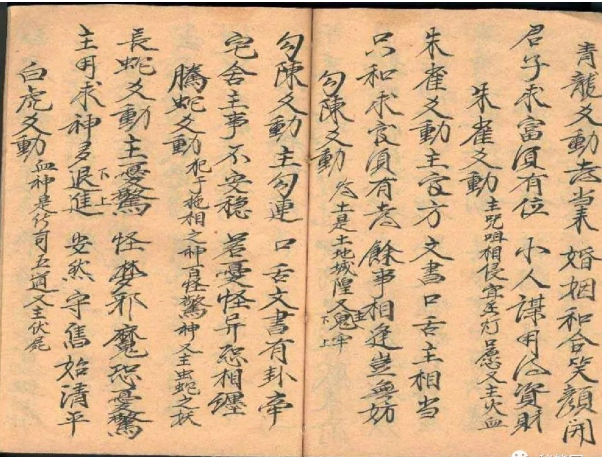 青龍爻動喜當來 婚姻和合笑顏開
君子求富須有位 小人謀用得資財
朱雀爻動 主咒咀相侵 又主火血
朱雀爻動主官方 文書口舌主相當
只和求官須有喜 餘事相逢豈無妨
勾陳爻動 土是土地城隍又
勾陳爻動主勾連 口舌文書有卦牽
宅舍主事不安穩 若憂怪异恐相纏
騰蛇爻動 犯于 相之神百怪驚神又主虫蛇之妖
長蛇爻動主憂驚 怪夢邪魔恐憂驚
主用求神多退進 安然守舊始清平
白虎爻動 血神 司五道又主伏屍